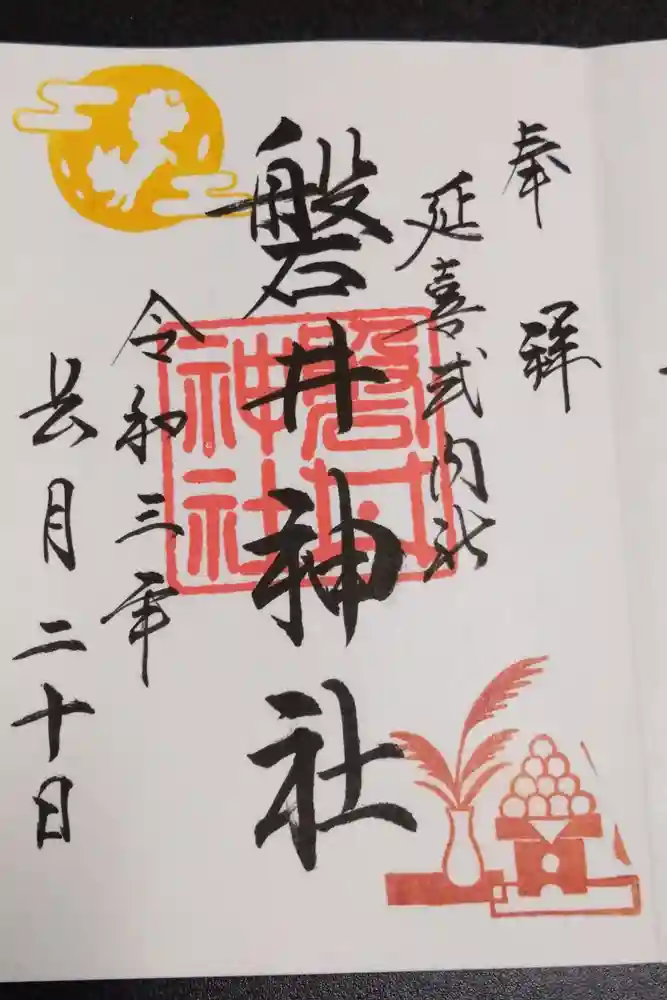 奉拝
延喜式内社
磐井神社
磐井神社
令和三年
長月二十日